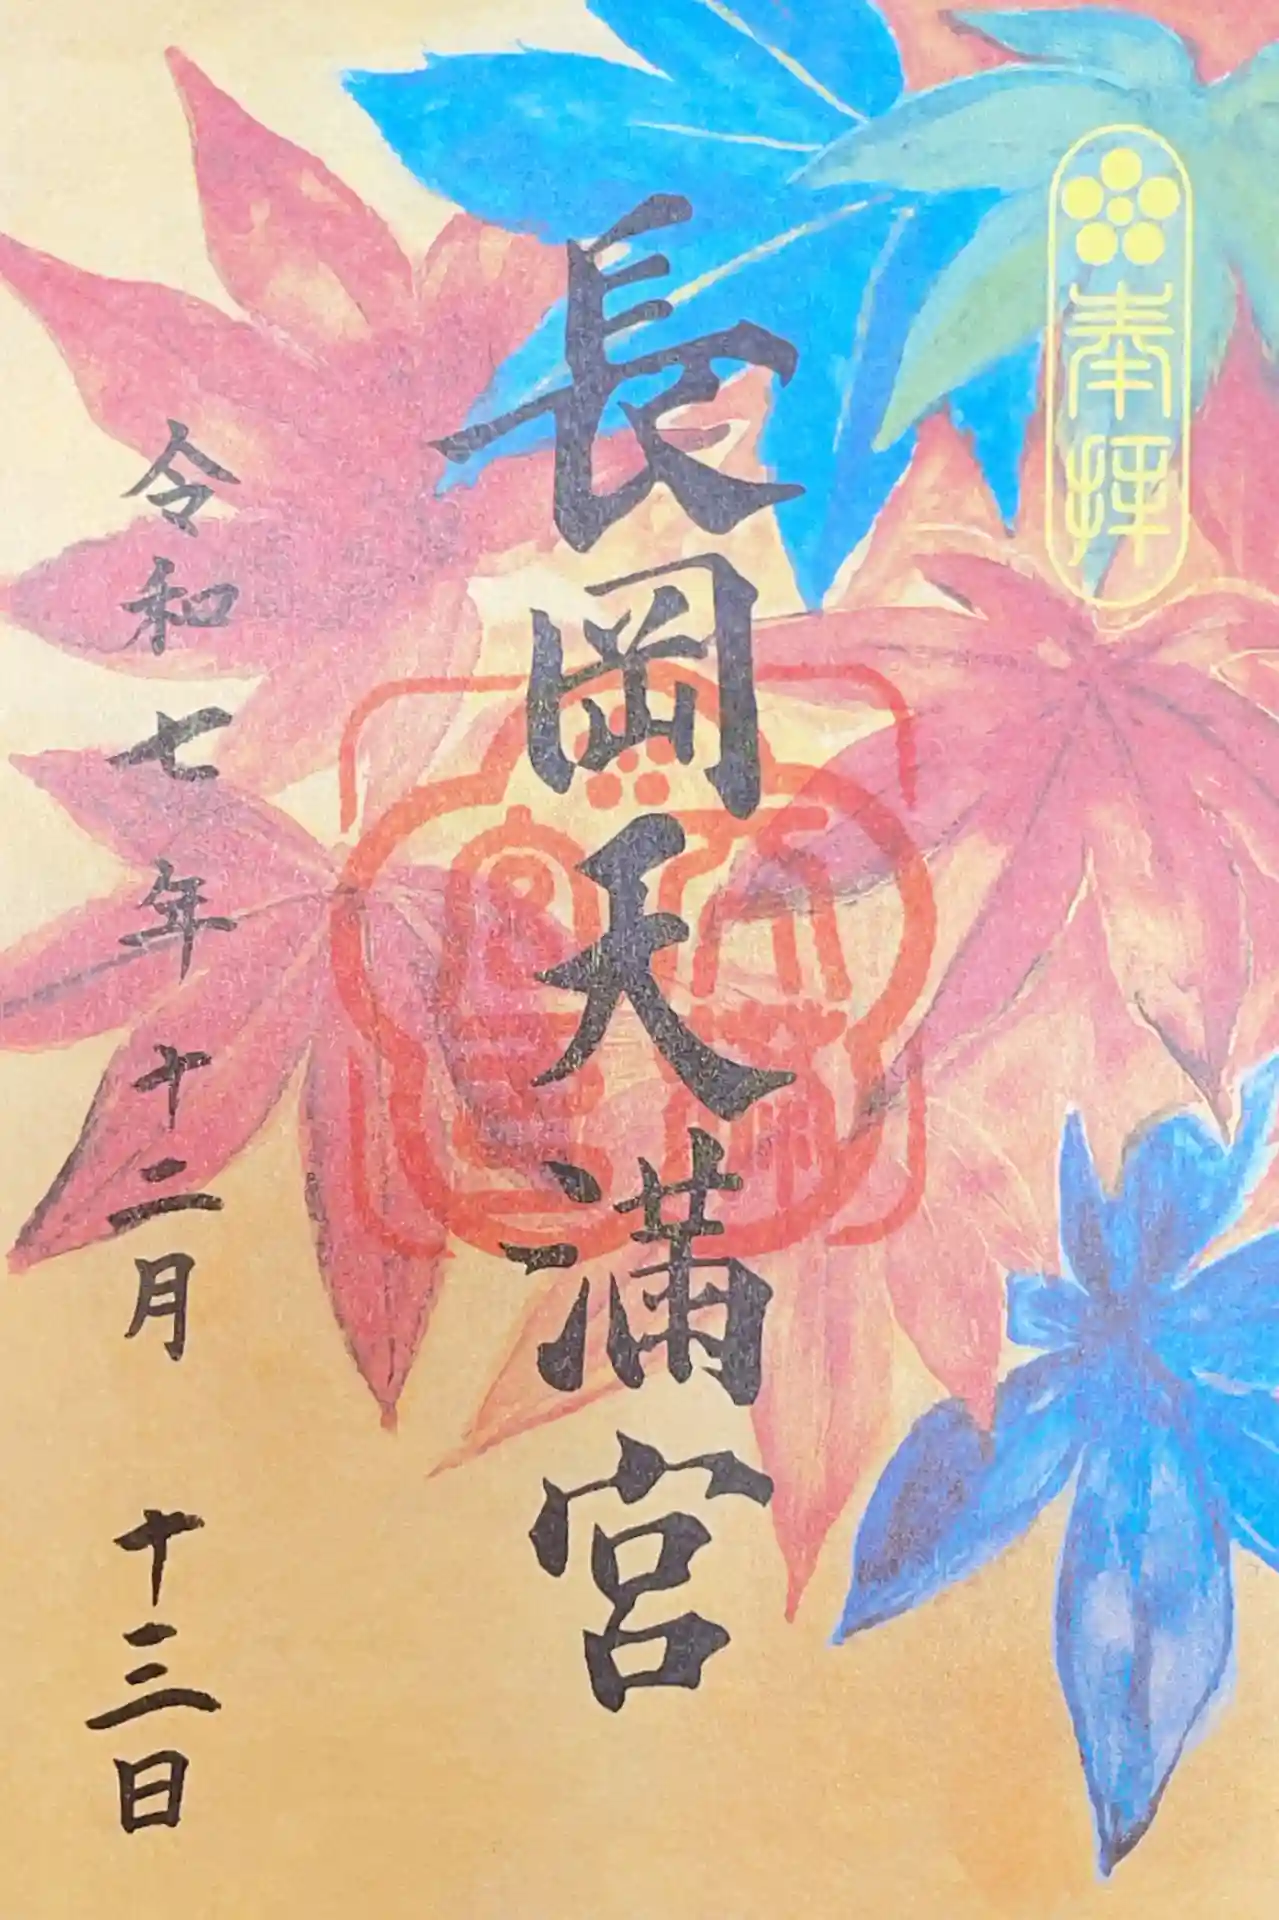 奉拝
長岡天満宮
令和七年十二月 十三日